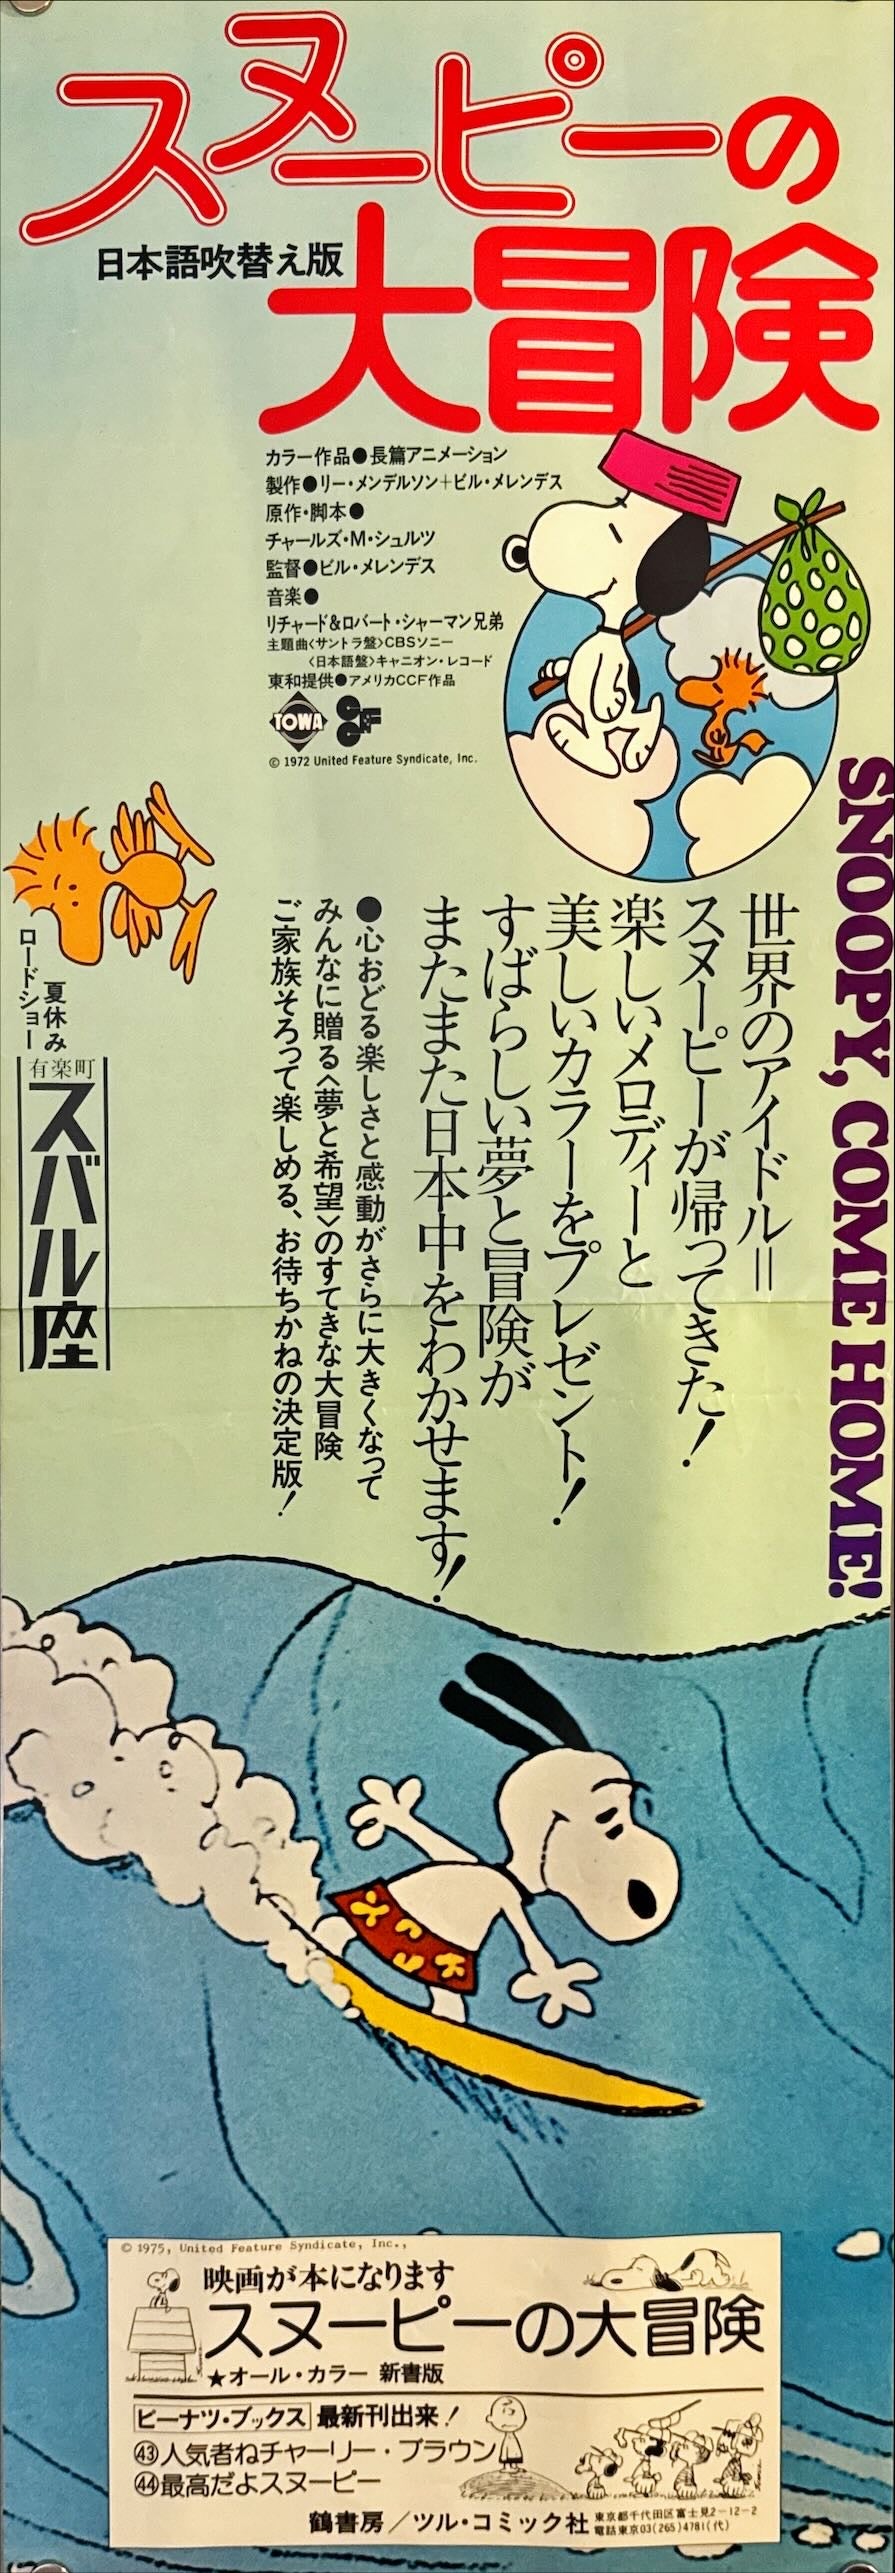 スヌーピーの
大冒険
日本語吹替え版
カラー作品●長篇アニメーション
製作●リー・メンデルソン+ビル・メレンデス
原作・脚本●
チャールズ・M・シュルツ
監督●ビル・メレンデス
音楽●
リチャード&ロバート・シャーマン兄弟
主題曲〈サントラ盤〉CBSソニー
〈日本語盤〉キャニオン・レコード
東和提供●アメリカCCF作品
TOWA
CCF
© 1972 United Feature Syndicate, Inc.
SNOOPY, COME HOME!
世界のアイドル＝
スヌーピーが帰ってきた！
楽しいメロディーと
美しいカラーをプレゼント！
すばらしい夢と冒険が
またまた日本中をわかせます！
●心おどる楽しさと感動がさらに大きくなって
みんなに贈る〈夢と希望〉のすてきな大冒険
ご家族そろって楽しめる、お待ちかねの決定版！
夏休み
ロードショー
有楽町
スバル座
© 1975, United Feature Syndicate, Inc.,
映画が本になります
スヌーピーの大冒険
★オール・カラー 新書版
ピーナツ・ブックス 最新刊出来！
㊸人気者ねチャーリー・ブラウン
㊹最高だよスヌーピー
鶴書房／ツル・コミック社
東京都千代田区富士見2-12-2
電話東京03(265)4781(代)